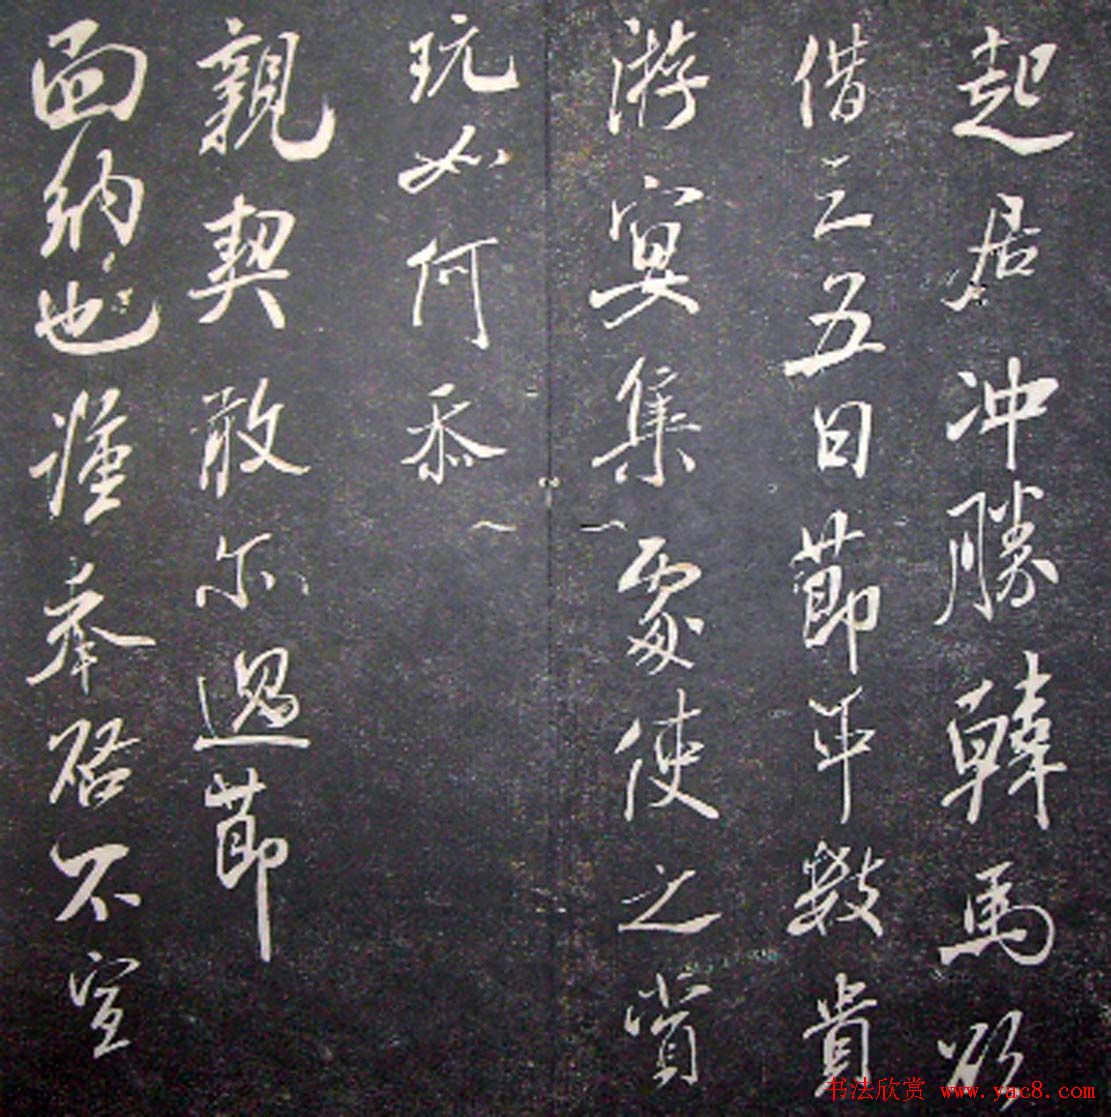 起居冲勝韓馬欲
借三五日節數貴
游宴集處使之賞
玩如何忝
親契敢尔過節
面納也謹奉啓不宣
书法欣赏 www.yac8.com